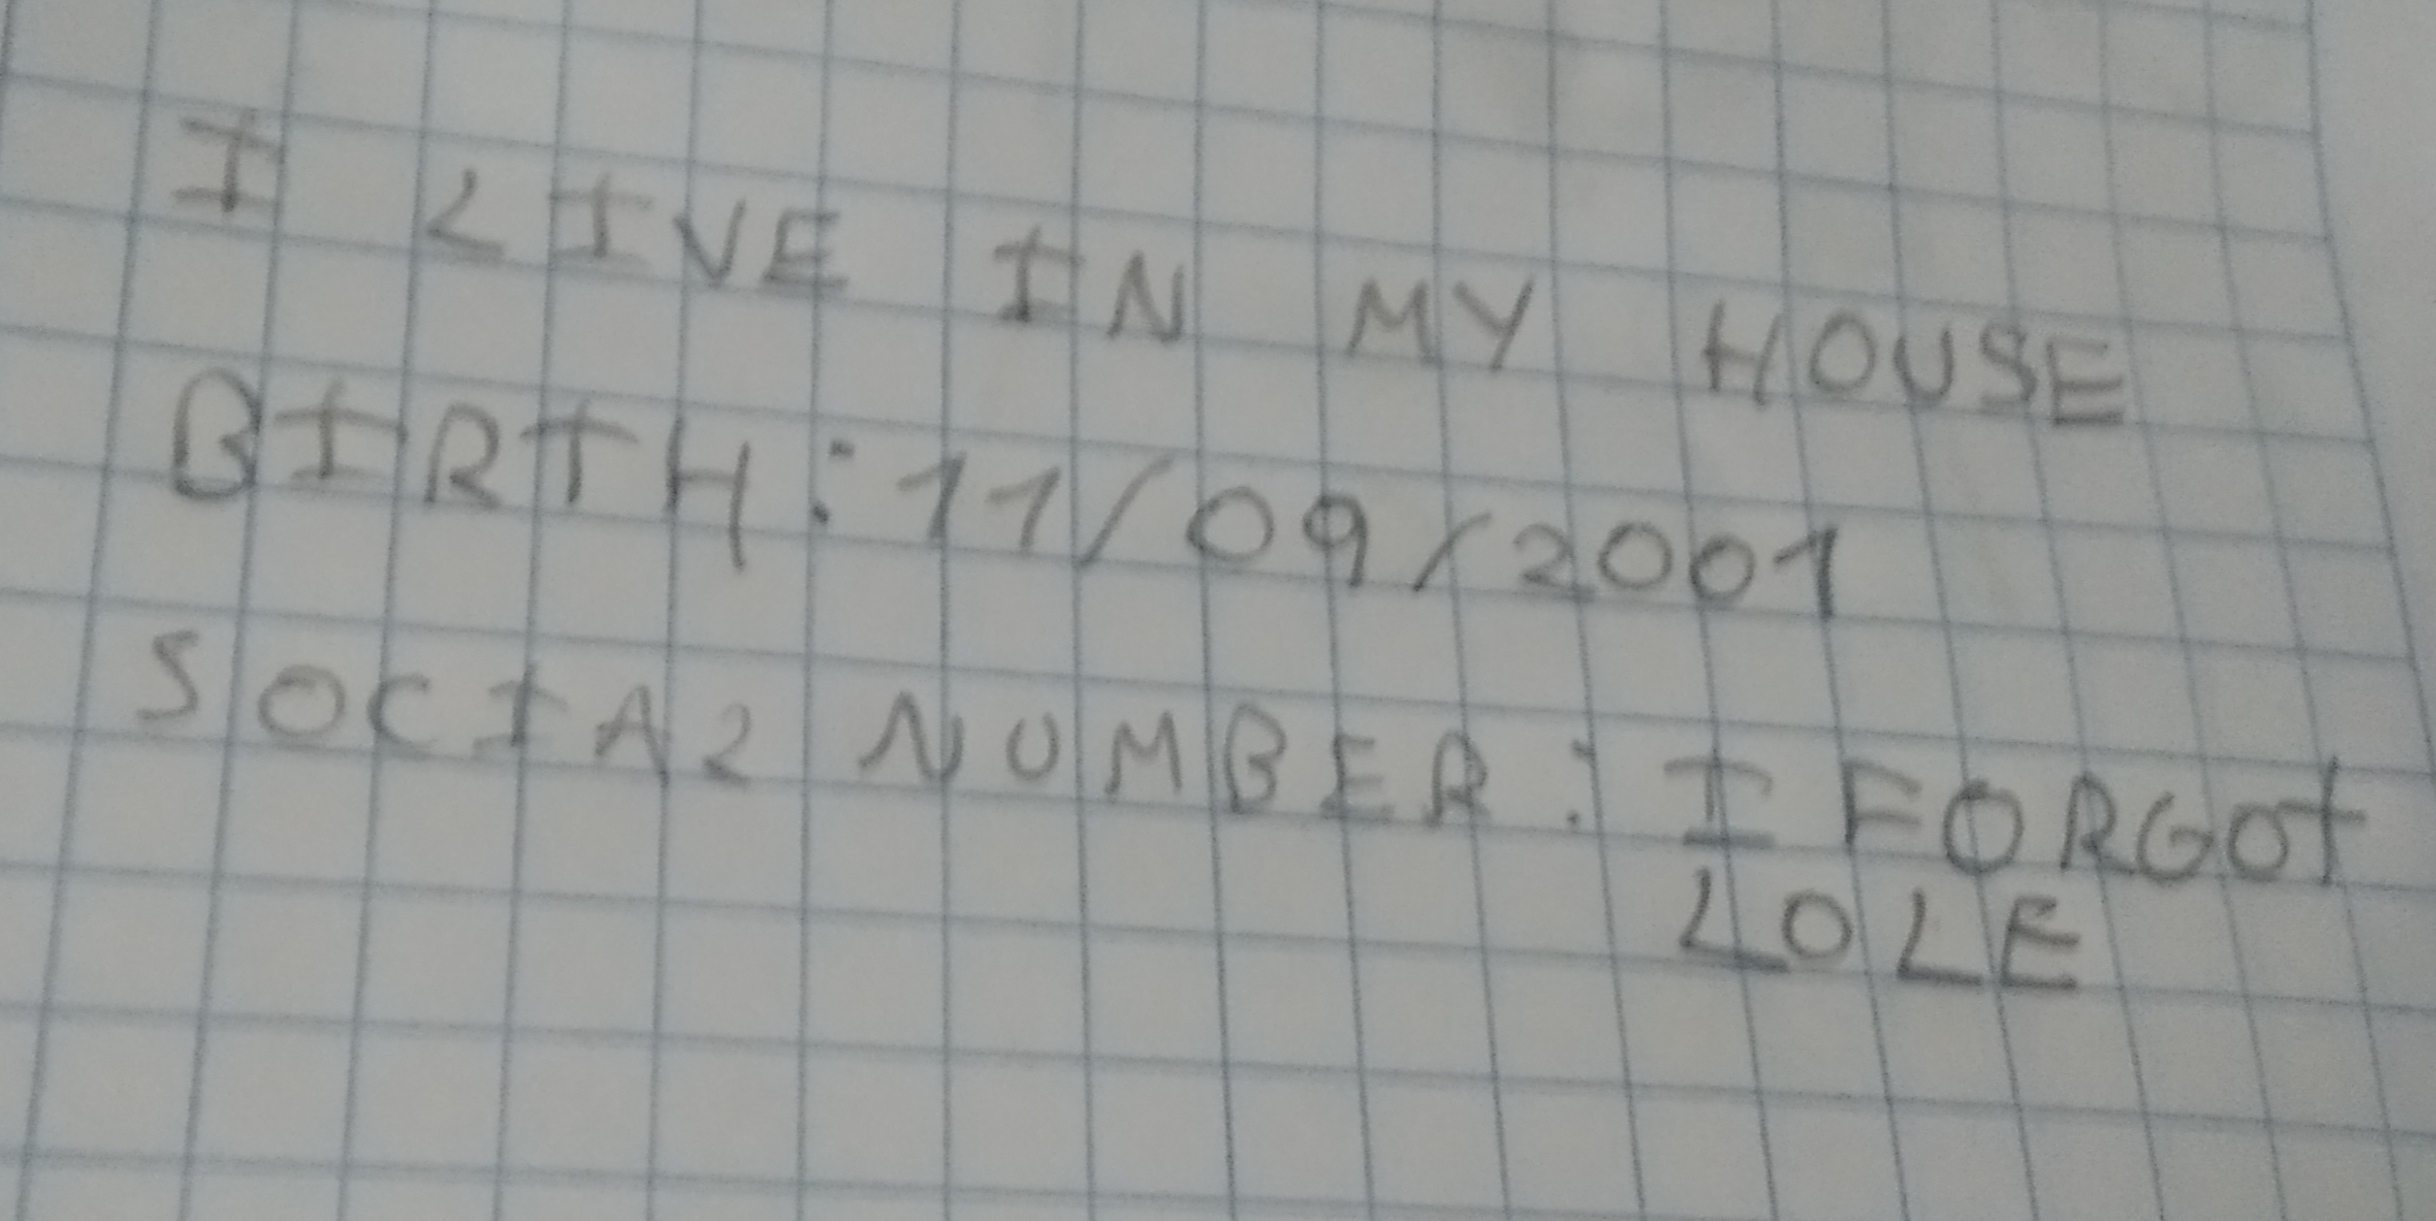 I LIVE IN MY HOUSE
BIRTH: 11/09/2001
SOCIAL NUMBER: I FORGOT
LOLE